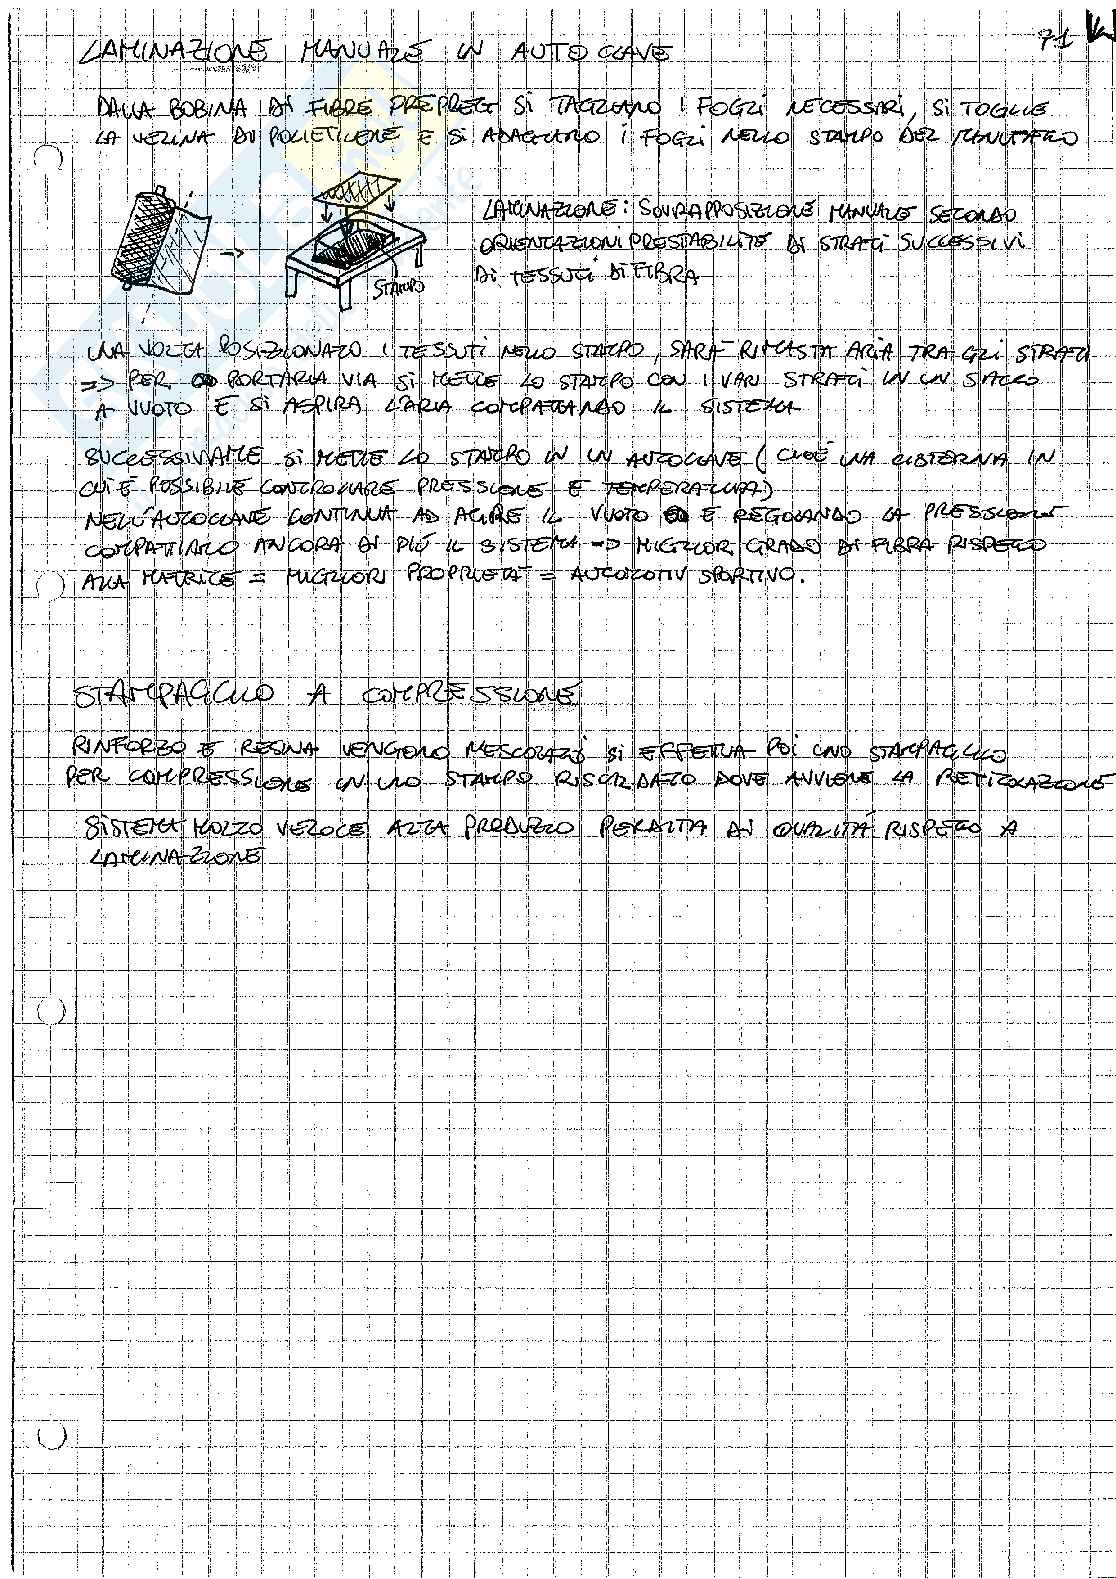 71
LAMINAZIONE MANUALE IN AUTOCLAVE
DALLA BOBINA DI FIBRE PREPREG SI TAGLIANO I FOGLI NECESSARI, SI TOGLIE
LA VELINA DI POLIETILENE E SI ADAGIANO I FOGLI NELLO STAMPO DEL MANUFATTO
LAMINAZIONE: SOVRAPPOSIZIONE MANUALE SECONDO
ORIENTAZIONI PRESTABILITE DI STRATI SUCCESSIVI
DI TESSUTI DI FIBRA
STAMPO
UNA VOLTA POSIZIONATO I TESSUTI NELLO STAMPO, SARÀ RIMASTA ARIA TRA GLI STRATI
=> PER PORTARLA VIA SI METTE LO STAMPO CON I VARI STRATI IN UN SACCO
A VUOTO E SI ASPIRA L'ARIA COMPATTANDO IL SISTEMA
SI METTE LO STAMPO IN UN AUTOCLAVE (CIOÈ UNA CISTERNA IN
CUI È POSSIBILE CONTROLLARE PRESSIONE E TEMPERATURA)
NELL'AUTOCLAVE CONTINUA AD AGIRE IL VUOTO E REGOLANDO LA PRESSIONE
COMPATTIAMO ANCORA DI PIÙ IL SISTEMA => MIGLIOR GRADO DI FIBRA RISPETTO
ALLA MATRICE = MIGLIORI PROPRIETÀ = AUTOMOTIV SPORTIVO.
STAMPAGGIO A COMPRESSIONE
RINFORZO E RESINA VENGONO MESCOLATI SI EFFETTUA POI UNO STAMPAGGIO
PER COMPRESSIONE IN UNO STAMPO RISCALDATO DOVE AVVIENE LA RETICOLAZIONE
SISTEMA MOLTO VELOCE, ALTA PRODUZIO PERDITA DI QUALITÀ RISPETTO A
LAMINAZIONE